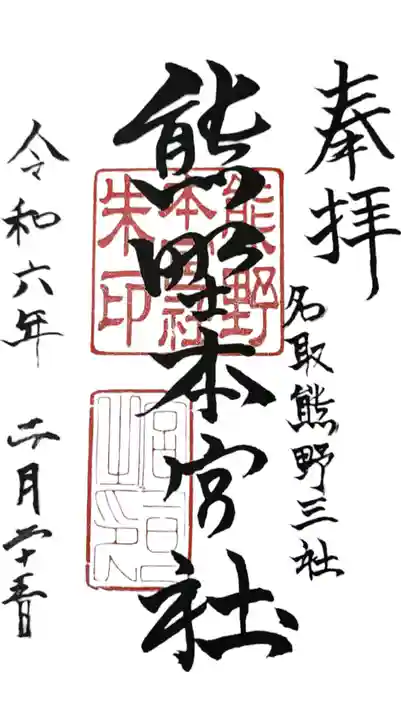 奉拝
名取熊野三社
熊野本宮社
熊野
本宮社
朱印
令和六年 二月二十五日